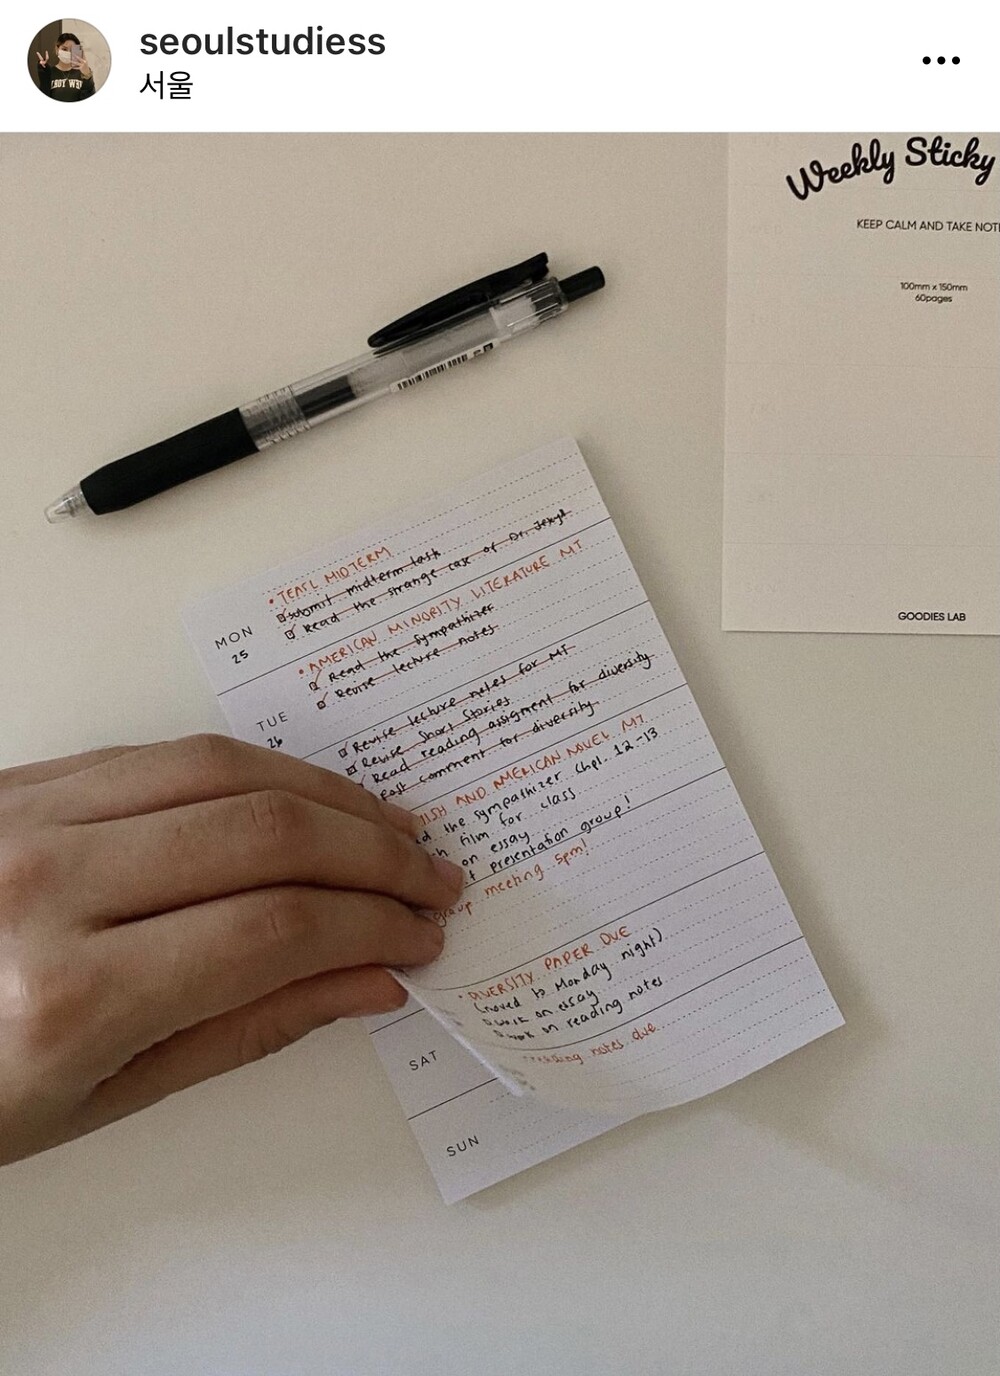 seoulstudiess
서울
Weekly Sticky
KEEP CALM AND TAKE NOT
100mm x 150mm
60pages
GOODIES LAB
• TEASL MIDTERM
submit midterm task
Read the strange case of Dr. Jekyll
MON
25
• AMERICAN MINORITY LITERATURE MT
Read the Sympathizer
Revise lecture notes
TUE
26
Revise lecture notes for MT
Revise Short Stories
Read reading assigment for diversity
Post comment for diversity
ISH AND AMERICAN NOVEL MT
the sympathizer Chpt. 12-13
film for class
on essay
presentation group!
group meeting 5pm!
• DIVERSITY PAPER DUE
(moved to Monday night)
work on essay
work on reading notes
notes due
SAT
SUN